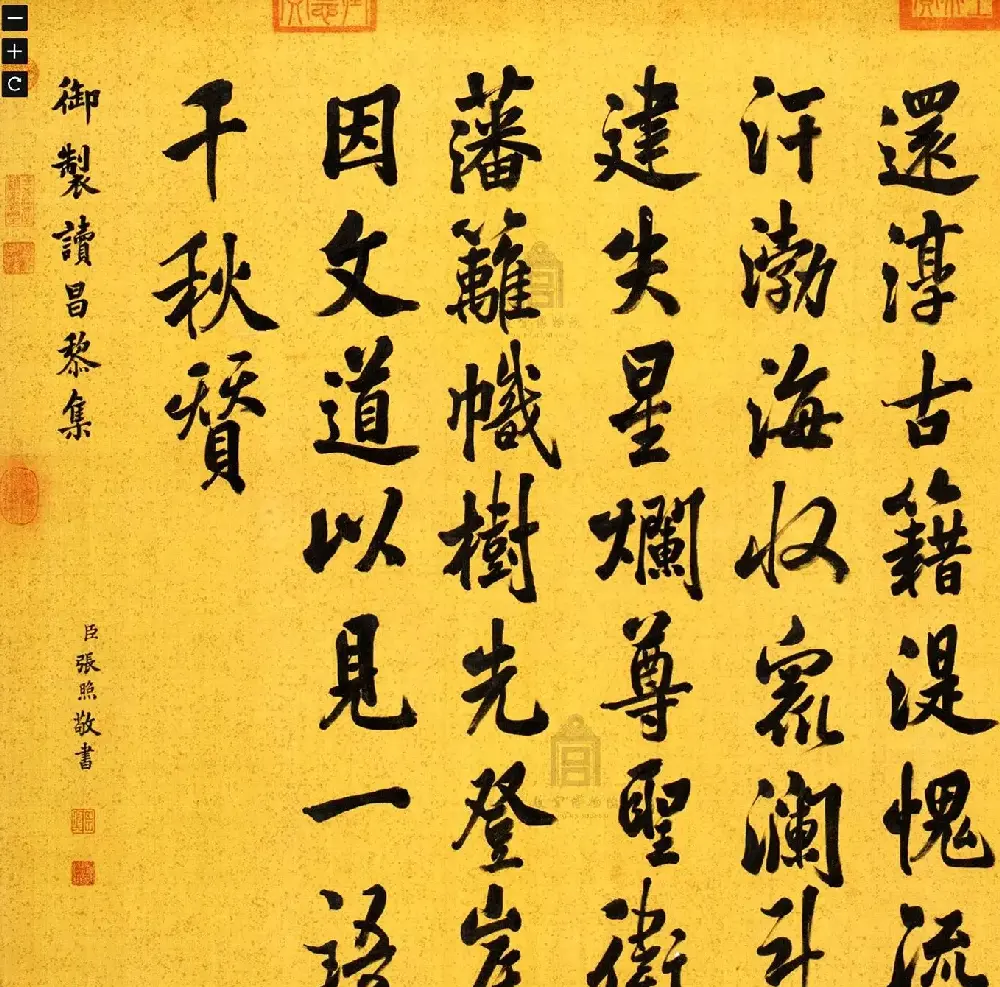 還淳古籍湜愧流
汗渤海收眾瀾斗
建失星爛尊聖衛
藩籬幟樹先登岸
因文道以見一語
千秋賛
御製讀昌黎集
臣張照敬書